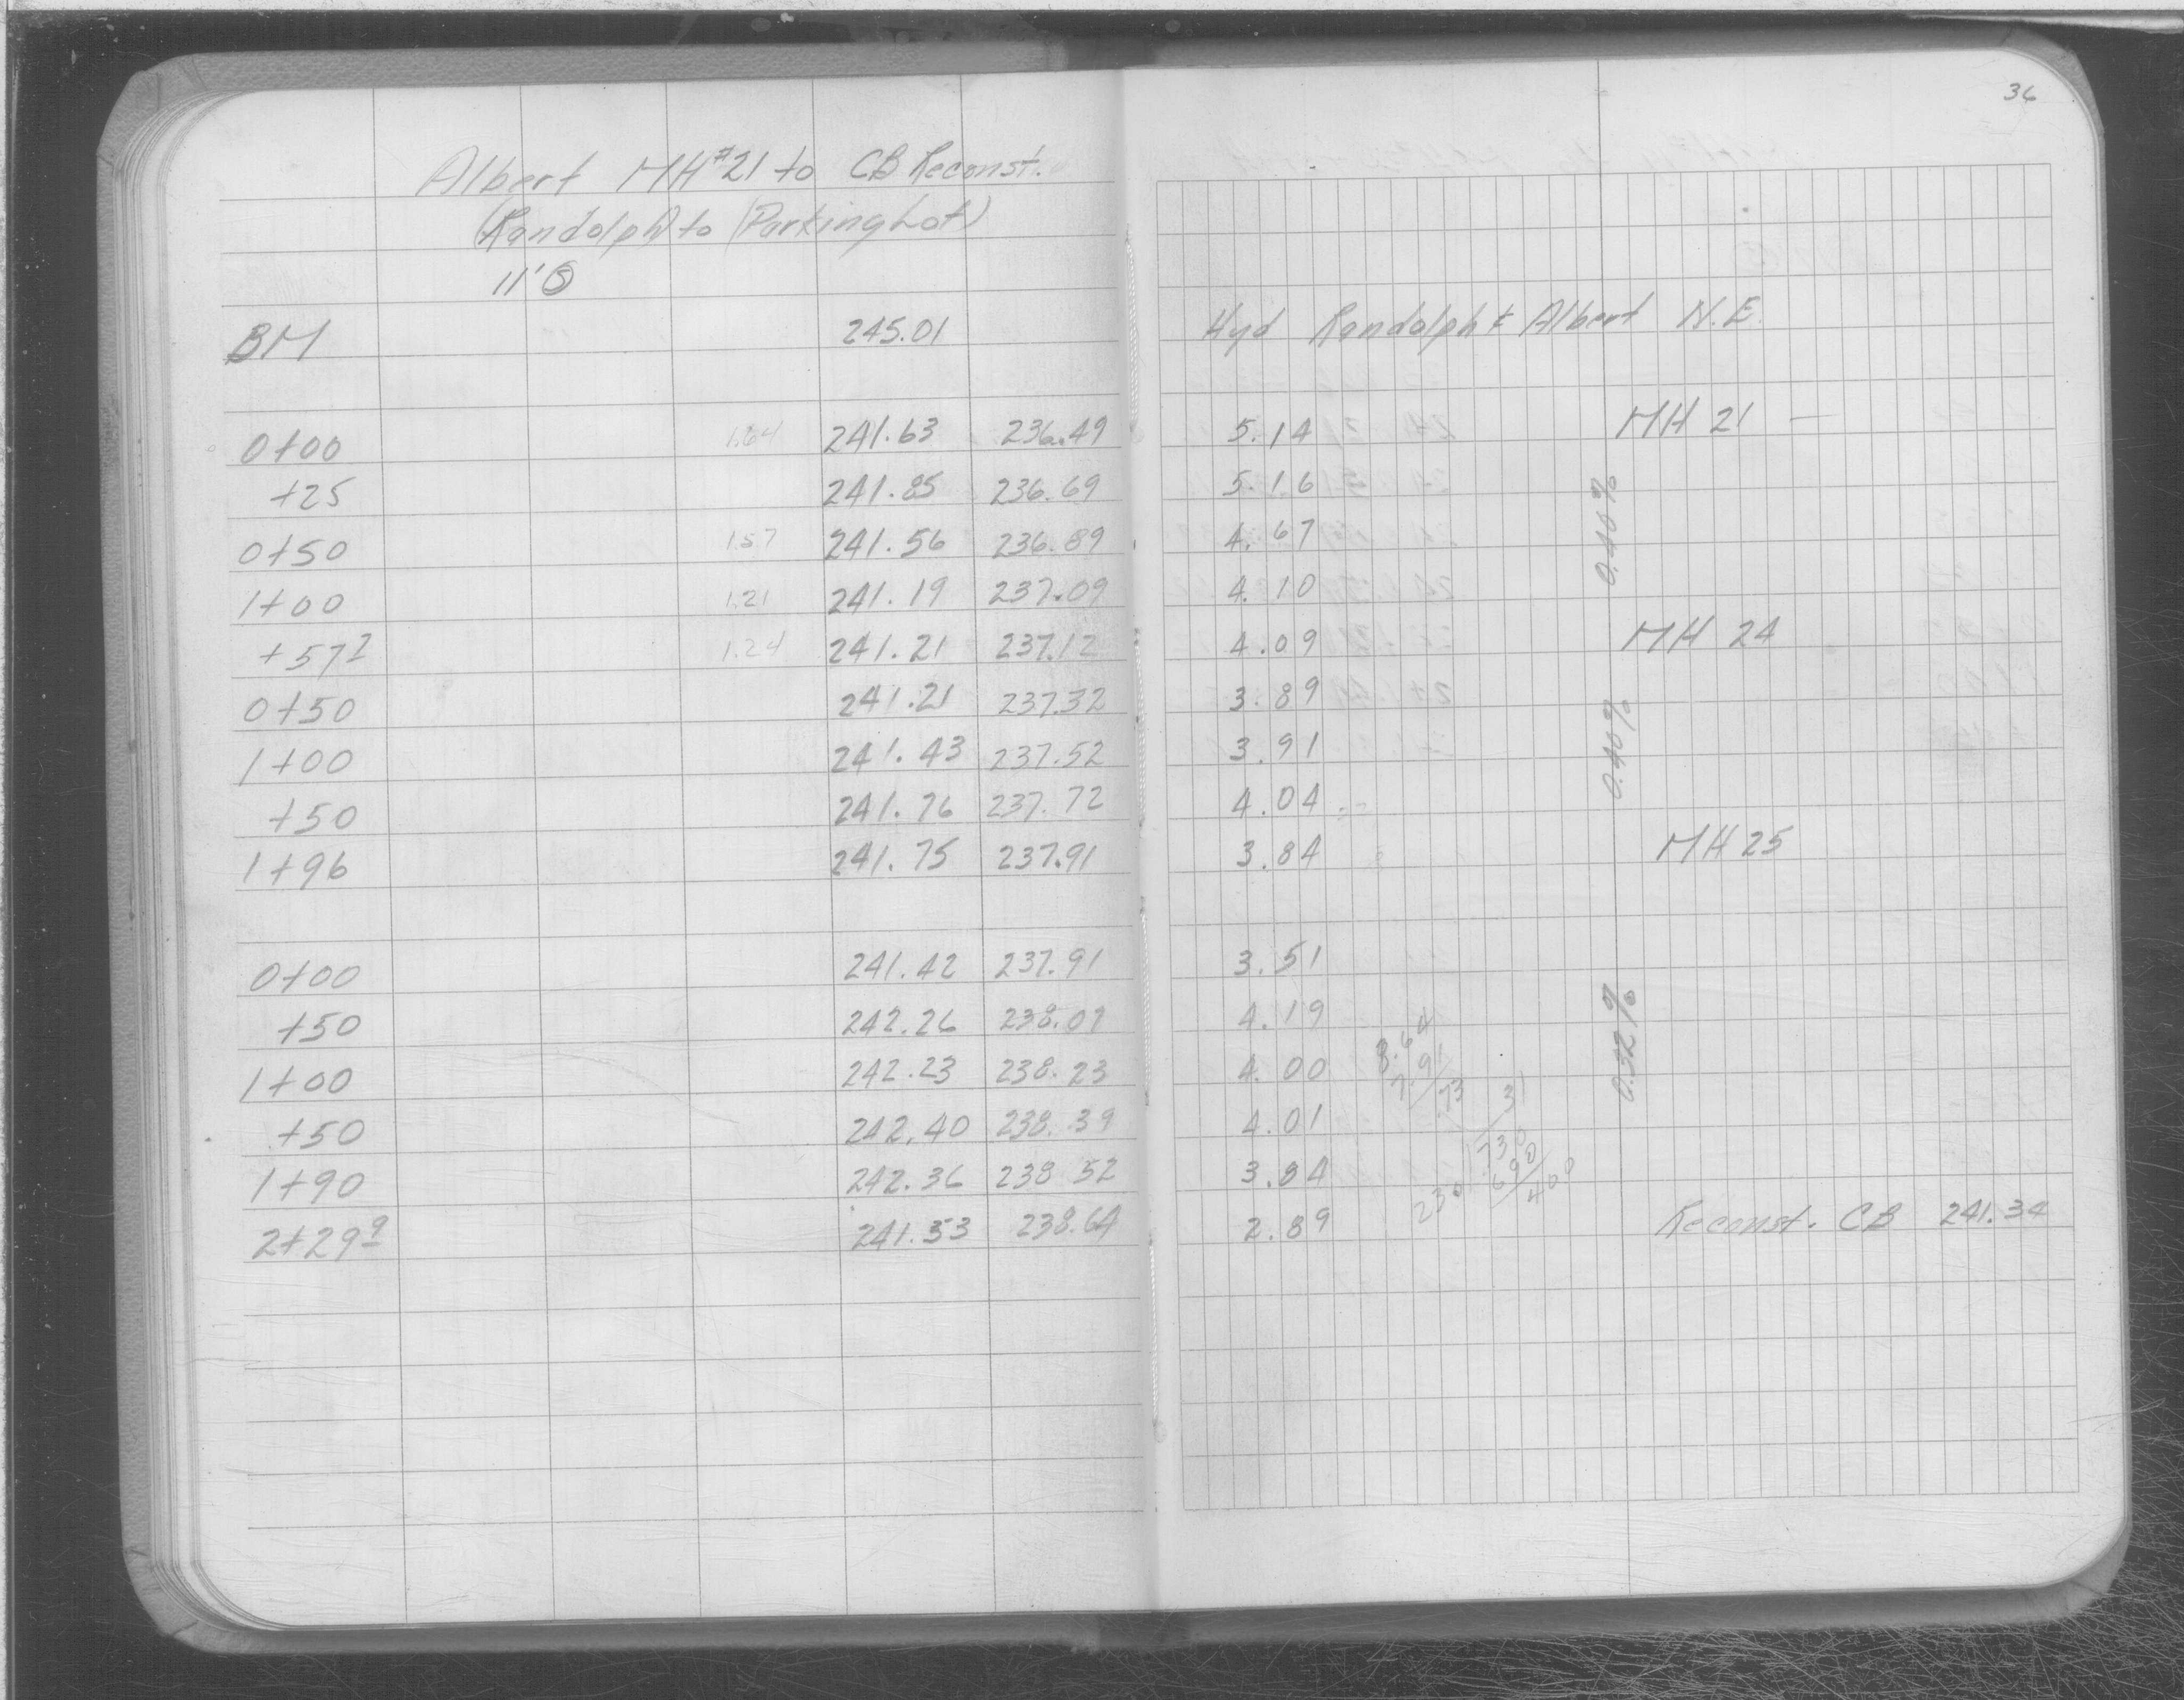 36
Albert MH #21 to CB Reconst.
(Randolph) to (Parking Lot)
11'
BM 245.01 Hyd Randolph & Albert N.E.
0+00 1.64 241.63 236.49 5.14 MH 21 —
+25 241.85 236.69 5.16
0.40%
0+50 1.57 241.56 236.89 4.67
1+00 1.21 241.19 237.09 4.10
+57 1.24 241.21 237.12 4.09 MH 24
0+50 241.21 237.32 3.89
0.40%
1+00 241.43 237.52 3.91
+50 241.76 237.72 4.04
1+96 241.75 237.91 3.84 MH 25
0+00 241.42 237.91 3.51
+50 242.26 238.07 4.19
0.32%
1+00 242.23 238.23 4.00
+50 242.40 238.39 4.01
1+90 242.36 238 52 3.84
2+29⁹ 241.53 238.64 2.89 Reconst. CB 241.34